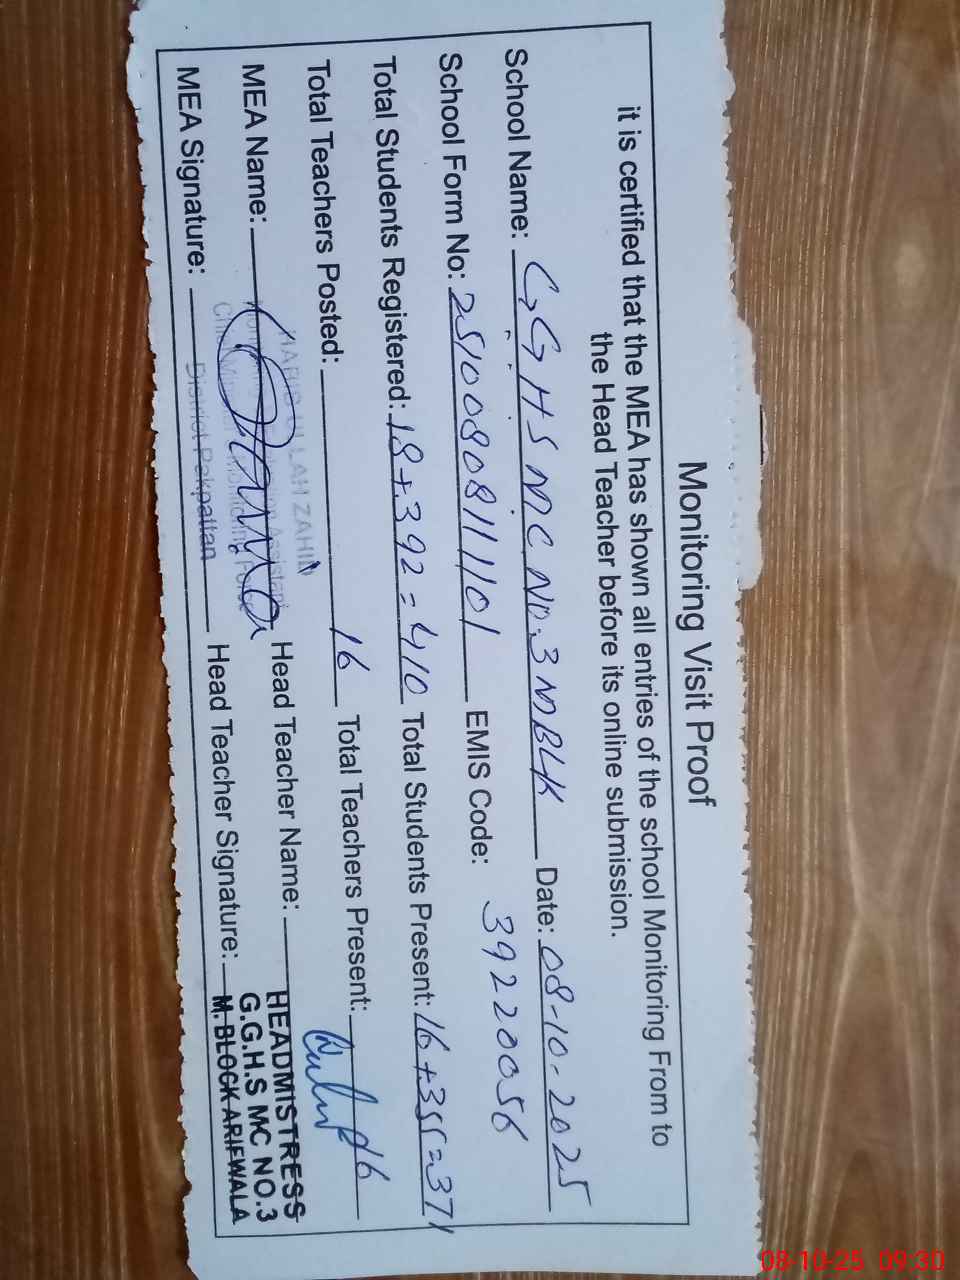 Monitoring Visit Proof
it is certified that the MEA has shown all entries of the school Monitoring From to
the Head Teacher before its online submission.
School Name: GGHS MC NO.3 MBLK Date: 08-10-2025
School Form No: 2510080811101 EMIS Code: 39220056
Total Students Registered: 18+392=410 Total Students Present: 16+355=371
Total Teachers Posted: 16 Total Teachers Present: 16
MEA Name: Head Teacher Name: HEADMISTRESS
G.G.H.S MC NO.3
MEA Signature: Head Teacher Signature: M. BLOCK ARIFWALA
ULLAH ZAHID
District Pakpattan
08-10-25 09:30